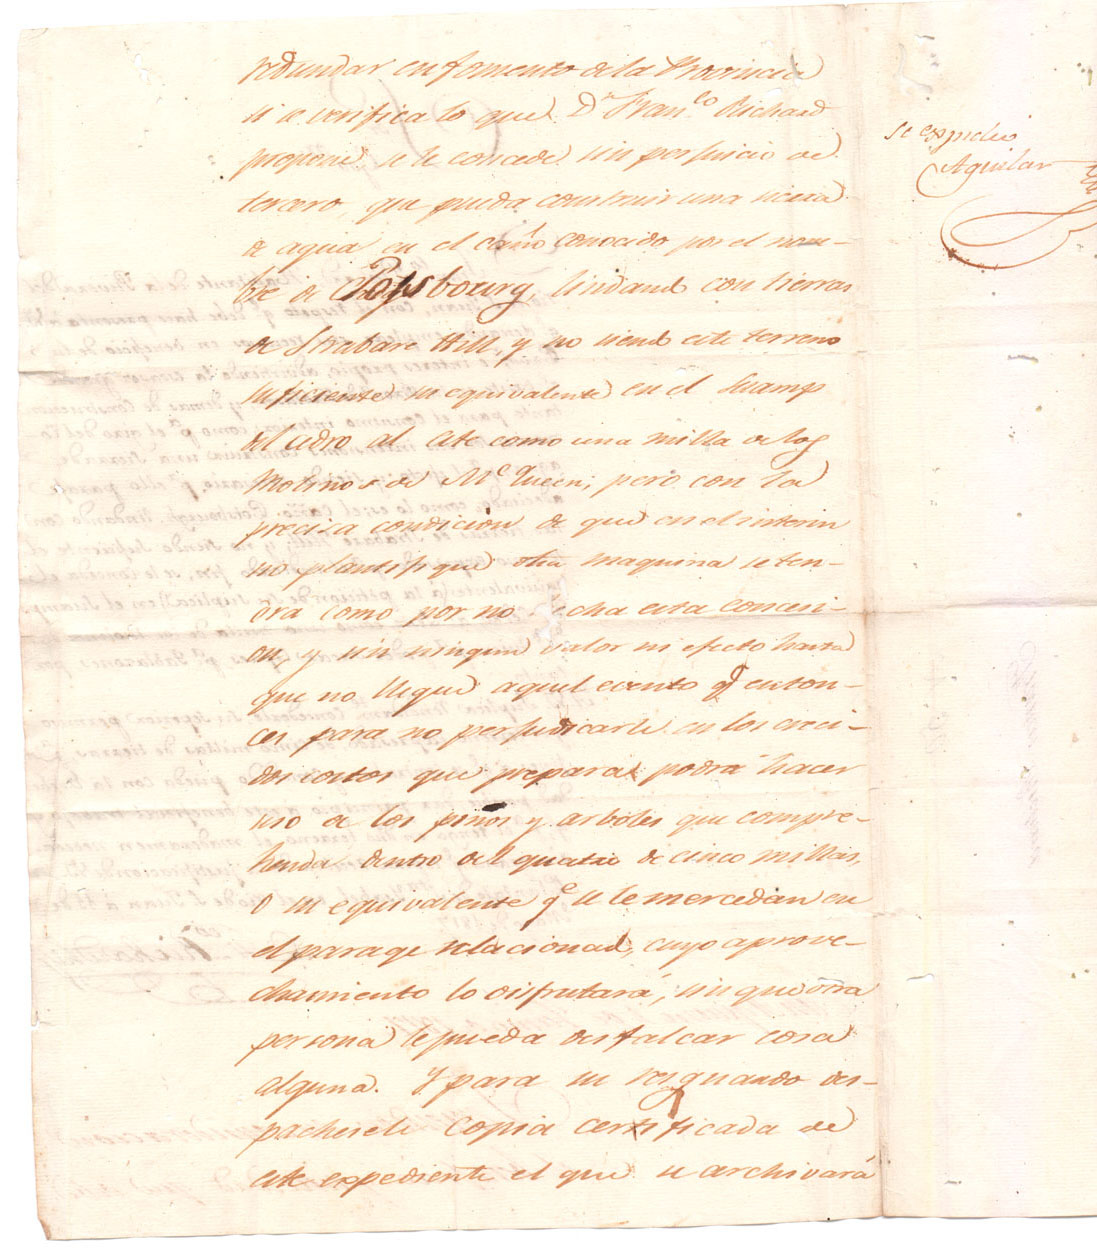 redundar en fomento de la Provincia
si se verifica lo que Dn Franco Richard
propone, se le concede sin perjuicio de
tercero, que pueda construir una sierra
de agua en el caño conocido por el nom-
bre de Potsbourg, lindando con tierras
de Strabare Hill, y no siendo este terreno
suficiente su equivalente en el Suamp
del cidro al Este como una milla de los
Molinos de Mc Queen, pero con la
precisa condicion de que en el interin
no plantifique otra maquina se ten-
dra como por no hecha esta concesi-
on y sin ningun valor ni efecto hasta
que no llegue aquel evento q enton-
ces para no perjudicarle en los creci-
dos costos que prepara podrá hacer
uso de los pinos y arboles que compre-
henda dentro del quatro de cinco millas,
o su equivalente qe se le mercedan en
el parage relacionado, cuyo aprove-
chamiento lo disfrutará, sin que otra
persona le pueda desfalcar cosa
alguna. Y para su resguardo des-
pachesele Copia certificada de
este expediente el que se archivará
se expidio
Aguilar